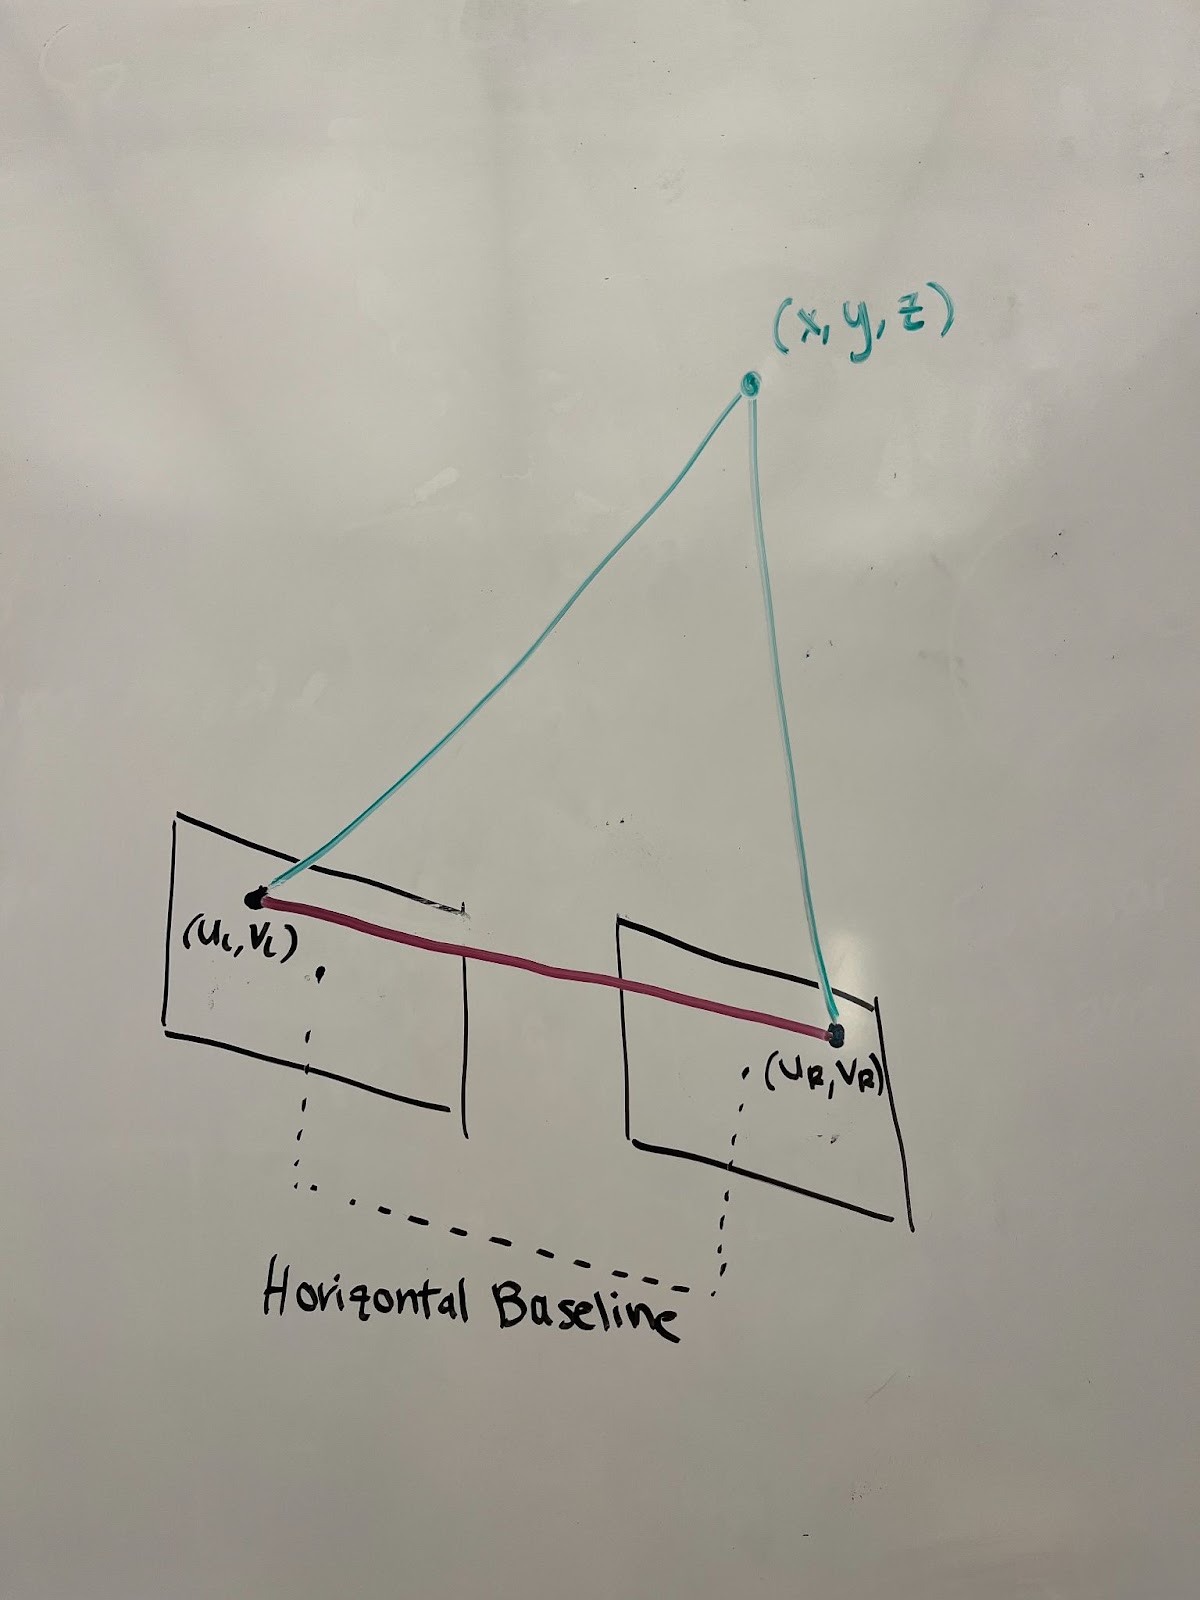 (x, y, z)
(u_L, v_L)
(u_R, v_R)
Horizontal Baseline